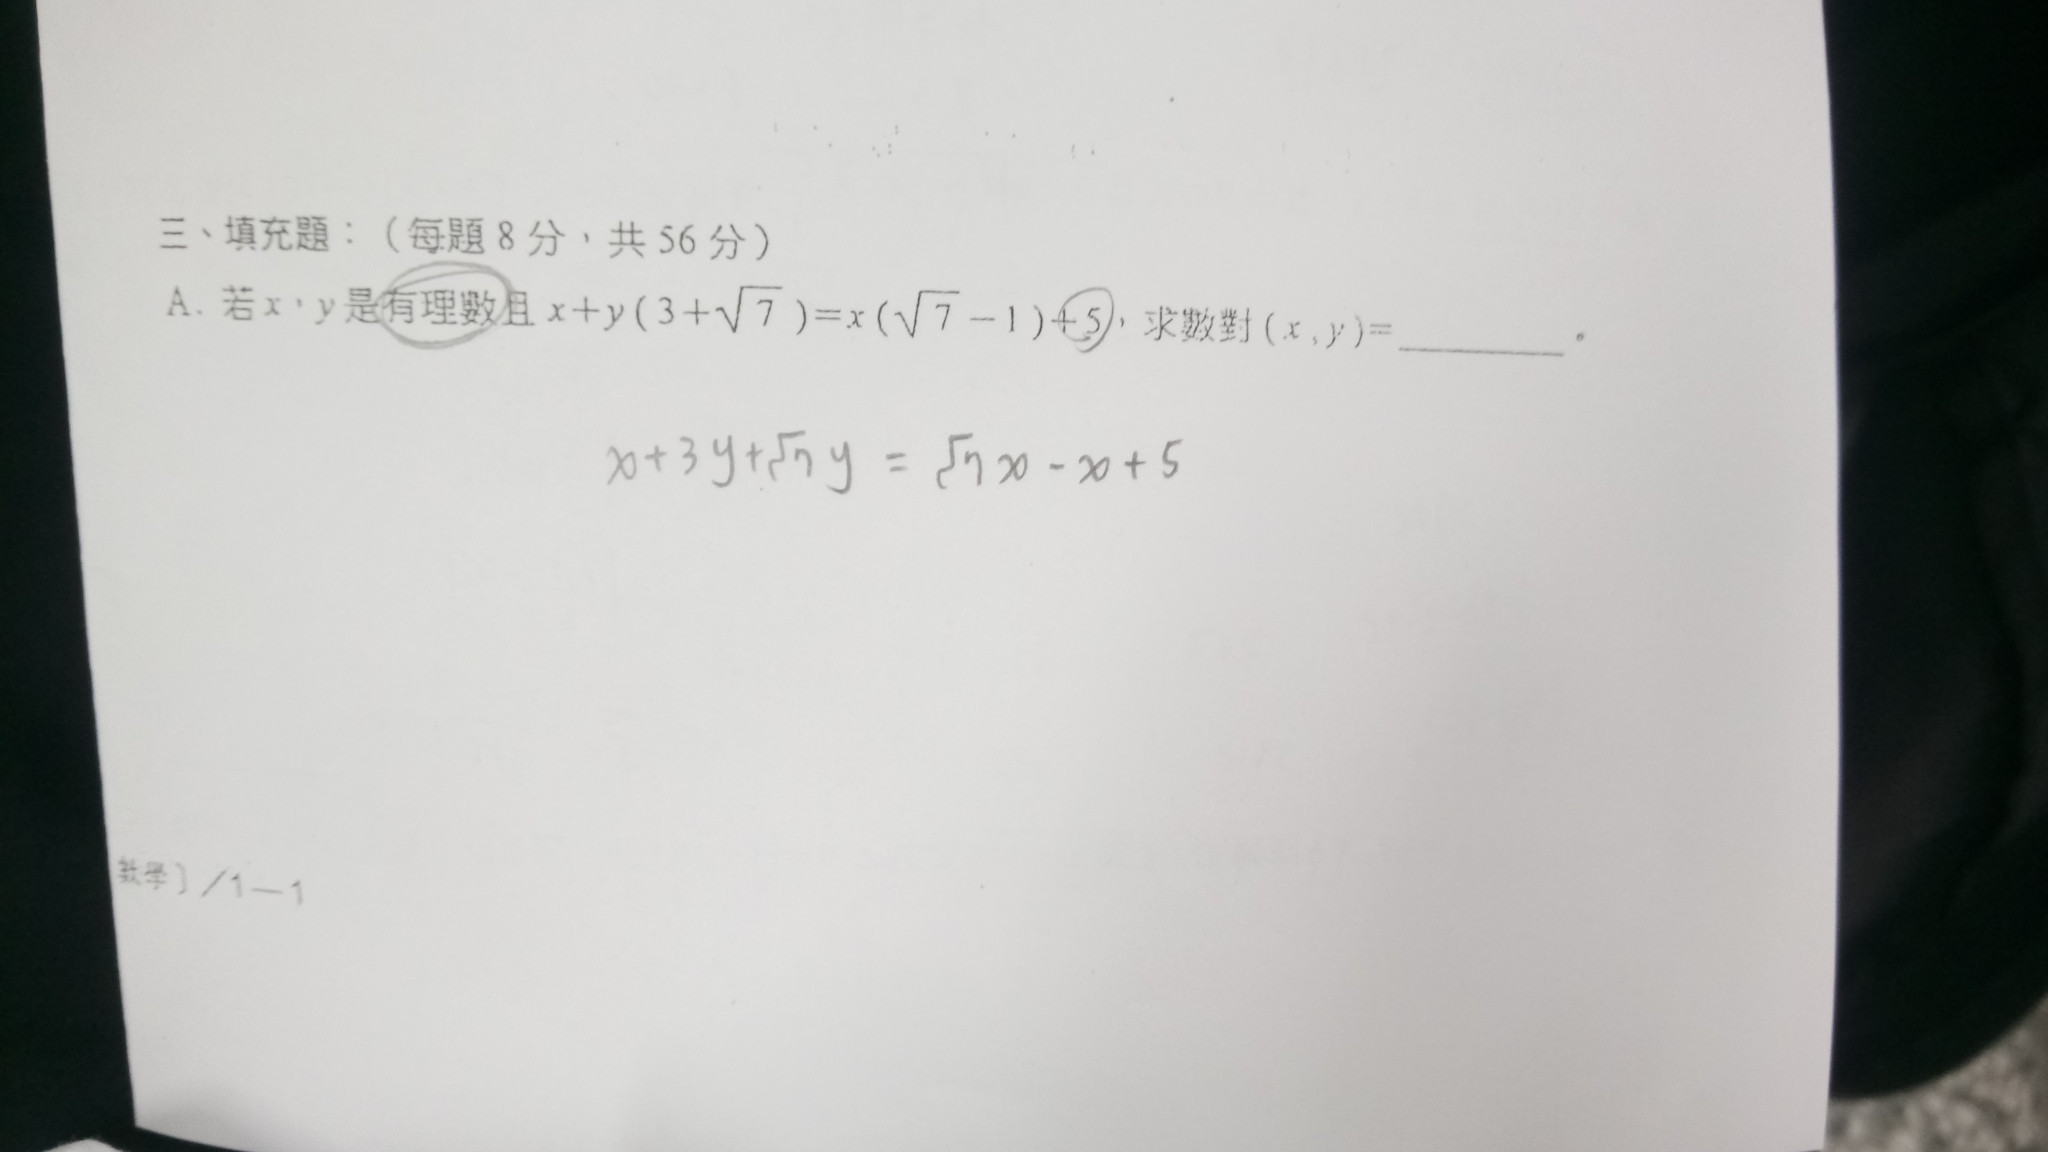 三、填充題：（每題 8 分，共 56 分）
A. 若 x，y 是有理數且 x+y(3+√7)=x(√7-1)+5，求數對(x,y)=______。
x+3y+√7y = √7x-x+5
數學〕/1－1